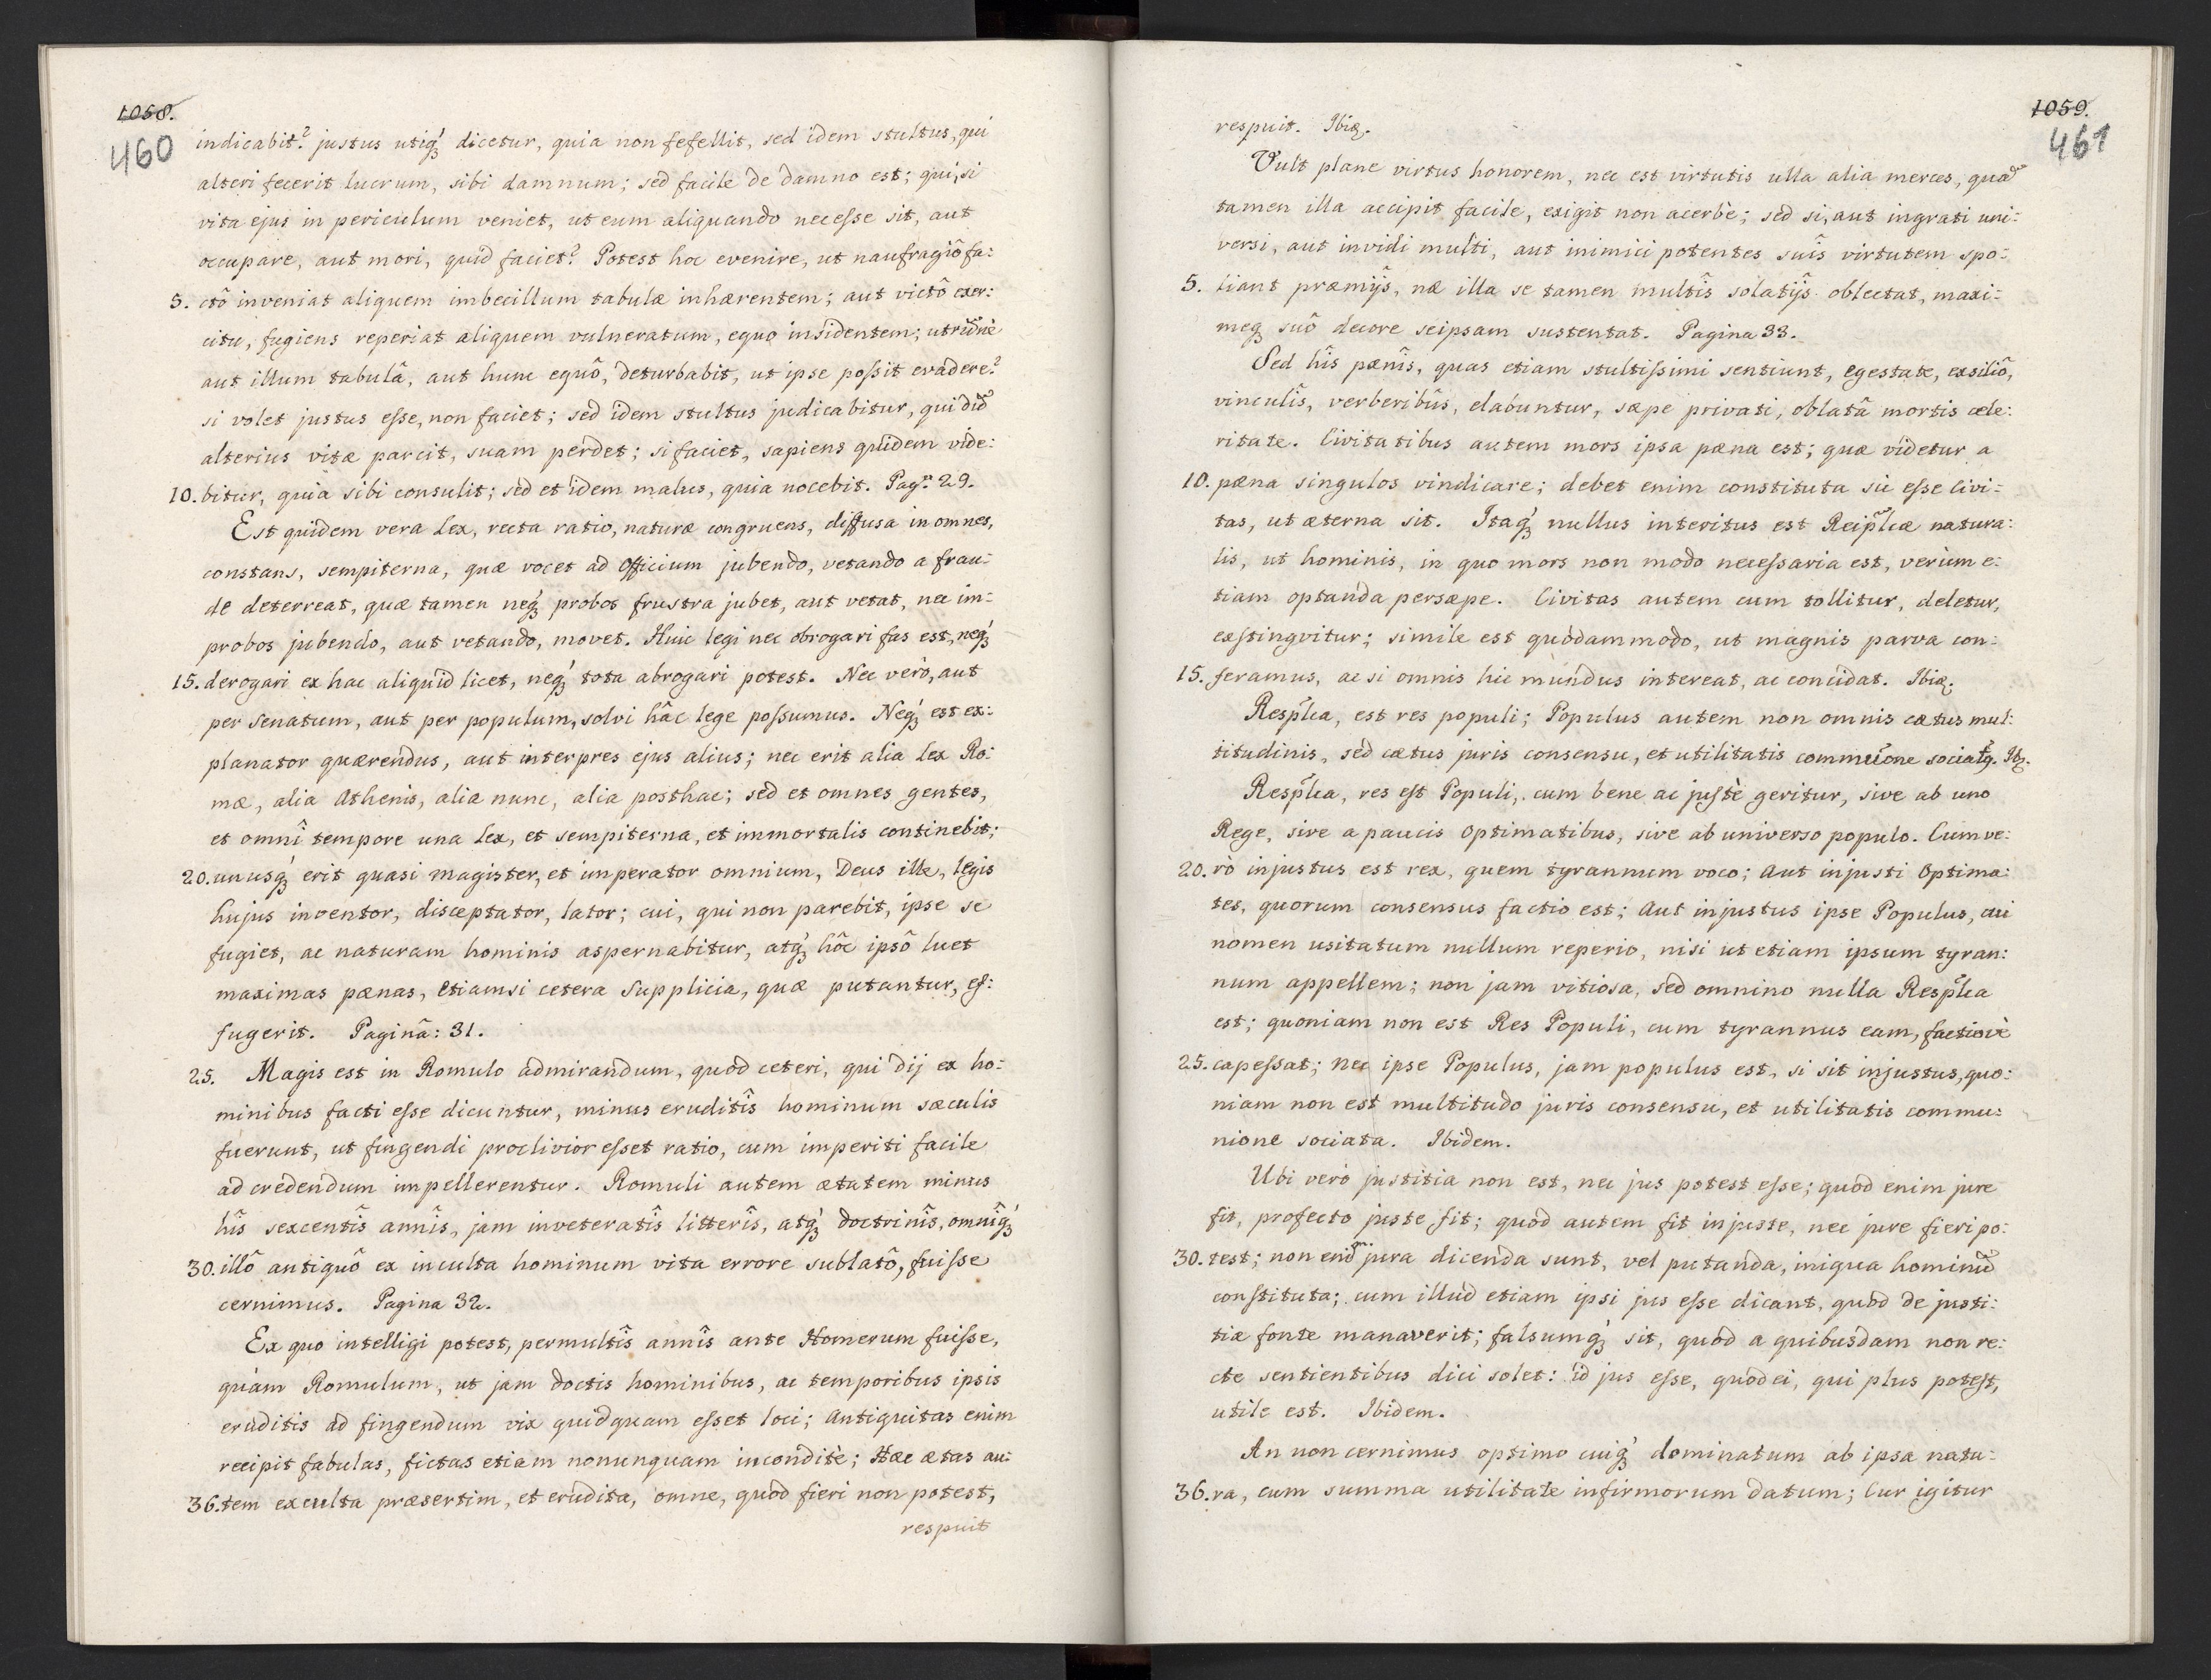 1058.
460
indicabit? justus utiq́ꝫ dicetur, quia non fefellit, sed idem stultus, qui
alteri fecerit lucrum, sibi damnum; sed facile de damno est; qui, si
vita ejus in periculum veniet, ut eum aliquando necesse sit, aut
occupare, aut mori, quid faciet? Potest hoc evenire, ut naufragiô fa:
5. ctô inveniat aliquem imbecillum tabulæ inhærentem; aut victô exer:
citu, fugiens reperiat aliquem vulneratum, equo insidentem; utrumne
aut illum tabulâ, aut hunc equô, deturbabit, ut ipse possit evadere?
si volet justus esse, non faciet; sed idem stultus judicabitur, qui dum
alterius vitæ parcit, suam perdet; si faciet, sapiens quidem vide:
10. bitur, quia sibi consulit; sed et idem malus, quia nocebit. Pagⁿ: 29.
Est quidem vera Lex, recta ratio, naturæ congruens, diffusa in omnes,
constans, sempiterna, quæ vocet ad Officium jubendo, vetando a frau:
de deterreat, quæ tamen neq́ꝫ probos frustra jubet, aut vetat, nec im:
probos jubendo, aut vetando, movet. Huic legi nec obrogari fas est, neq́ꝫ
15. derogari ex hac aliquid licet, neq́ꝫ tota abrogari potest. Nec verò, aut
per Senatum, aut per populum, solvi hâc lege possumus. Neq́ꝫ est ex:
planator quærendus, aut interpres ejus alius; nec erit alia Lex Ro:
mæ, alia Athenis, alia nunc, alia posthac; sed et omnes gentes,
et omnî tempore una Lex, et sempiterna, et immortalis continebit;
20. unusq́ꝫ erit quasi magister, et imperator omnium, Deus ille, legis
hujus inventor, disceptator, lator; cui, qui non parebit, ipse se
fugiet, ac naturam hominis aspernabitur, atq́ꝫ hôc ipsô luet
maximas pænas, etiamsi cetera Supplicia, quæ putantur, ef:
fugerit. Paginâ: 31.
25. Magis est in Romulo admirandum, quod ceteri, qui dij ex ho:
minibus facti esse dicuntur, minus eruditîs hominum sæculis
fuerunt, ut fingendi proclivior esset ratio, cum imperiti facile
ad credendum impellerentur. Romuli autem ætatem minus
hîs sexcentîs annîs, jam inveteratîs litterîs, atq́ꝫ doctrinîs, omnîq́ꝫ
30. illô antiquô ex inculta hominum vita errore sublatô, fuisse
cernimus. Pagina 32.
Ex quo intelligi potest, permultîs annîs ante Homerum fuisse,
quàm Romulum, ut jam doctis hominibus, ac temporibus ipsis
eruditis ad fingendum vix quidquam esset loci; Antiquitas enim
recipit fabulas, fictas etiam nonunquam inconditè; Hæc ætas au:
36. tem exculta præsertim, et erudita, omne, quod fieri non potest,
respuit
1059.
461
respuit. Ibiꝫ.
Vult plane virtus honorem, nec est virtutis ulla alia merces, quam
tamen illa accipit facile, exigit non acerbè; sed si, aut ingrati uni:
versi, aut invidi multi, aut inimici potentes suîs virtutem spo:
5. liant præmijs, næ illa se tamen multîs solatijs oblectat, maxi:
meqꝫ suô decore seipsam sustentat. Pagina 33.
Sed hîs pænîs, quas etiam stultissimi sentiunt, egestate, exsiliô,
vinculîs, verberibûs, elabuntur, sæpe privati, oblatâ mortis cele:
ritate. Civitatibus autem mors ipsa pæna est; quæ videtur a
10. pæna singulos vindicare; debet enim constituta sic esse Civi:
tas, ut æterna sit. Itaq́ꝫ nullus interitus est Reiplcæ natura:
lis, ut hominis, in quo mors non modo necessaria est, verùm e:
tiam optanda persæpe. Civitas autem cum tollitur, deletur,
exstingvitur; simile est quodammodo, ut magnis parva con:
15. feramus, ac si omnis hic mundus intereat, ac concidat. Ibiꝫ.
Resplca, est res populi; Populus autem non omnis cætus mul:
titudinis, sed cætus juris consensu, et utilitatis commuione sociatꝫ. Ibꝫ.
Resplca, res est Populi, cum bene ac justè geritur, sive ab uno
Rege, sive a paucis Optimatibus, sive ab universo populo. Cum ve:
20. rò injustus est rex, quem tyrannum voco; Aut injusti Optima:
tes, quorum consensus factio est; Aut injustus ipse Populus, cui
nomen usitatum nullum reperio, nisi ut etiam ipsum tyran:
num appellem; non jam vitiosa, sed omnino nulla Resplca
est; quoniam non est Res Populi, cum tyrannus eam, factiovè
25. capessat; nec ipse Populus, jam populus est, si sit injustus, quo:
niam non est multitudo juris consensu, et utilitatis commu:
nione sociata. Ibidem.
Ubi verò justitia non est, nec jus potest esse; quod enim jure
fit, profecto juste fit; quod autem fit injuste, nec jure fieri po:
30. test; non enim jura dicenda sunt, vel putanda, iniqua hominum
constituta; cum illud etiam ipsi jus esse dicant, quod de justi:
tiæ fonte manaverit; falsumq́ꝫ sit, quod a quibusdam non re:
cte sentientibus dici solet: id jus esse, quod ei, qui plus potest,
utile est. Ibidem.
An non cernimus optimo cuiq́ꝫ dominatum ab ipsa natu:
36. ra, cum summa utilitate infirmorum datum; Cur igitur